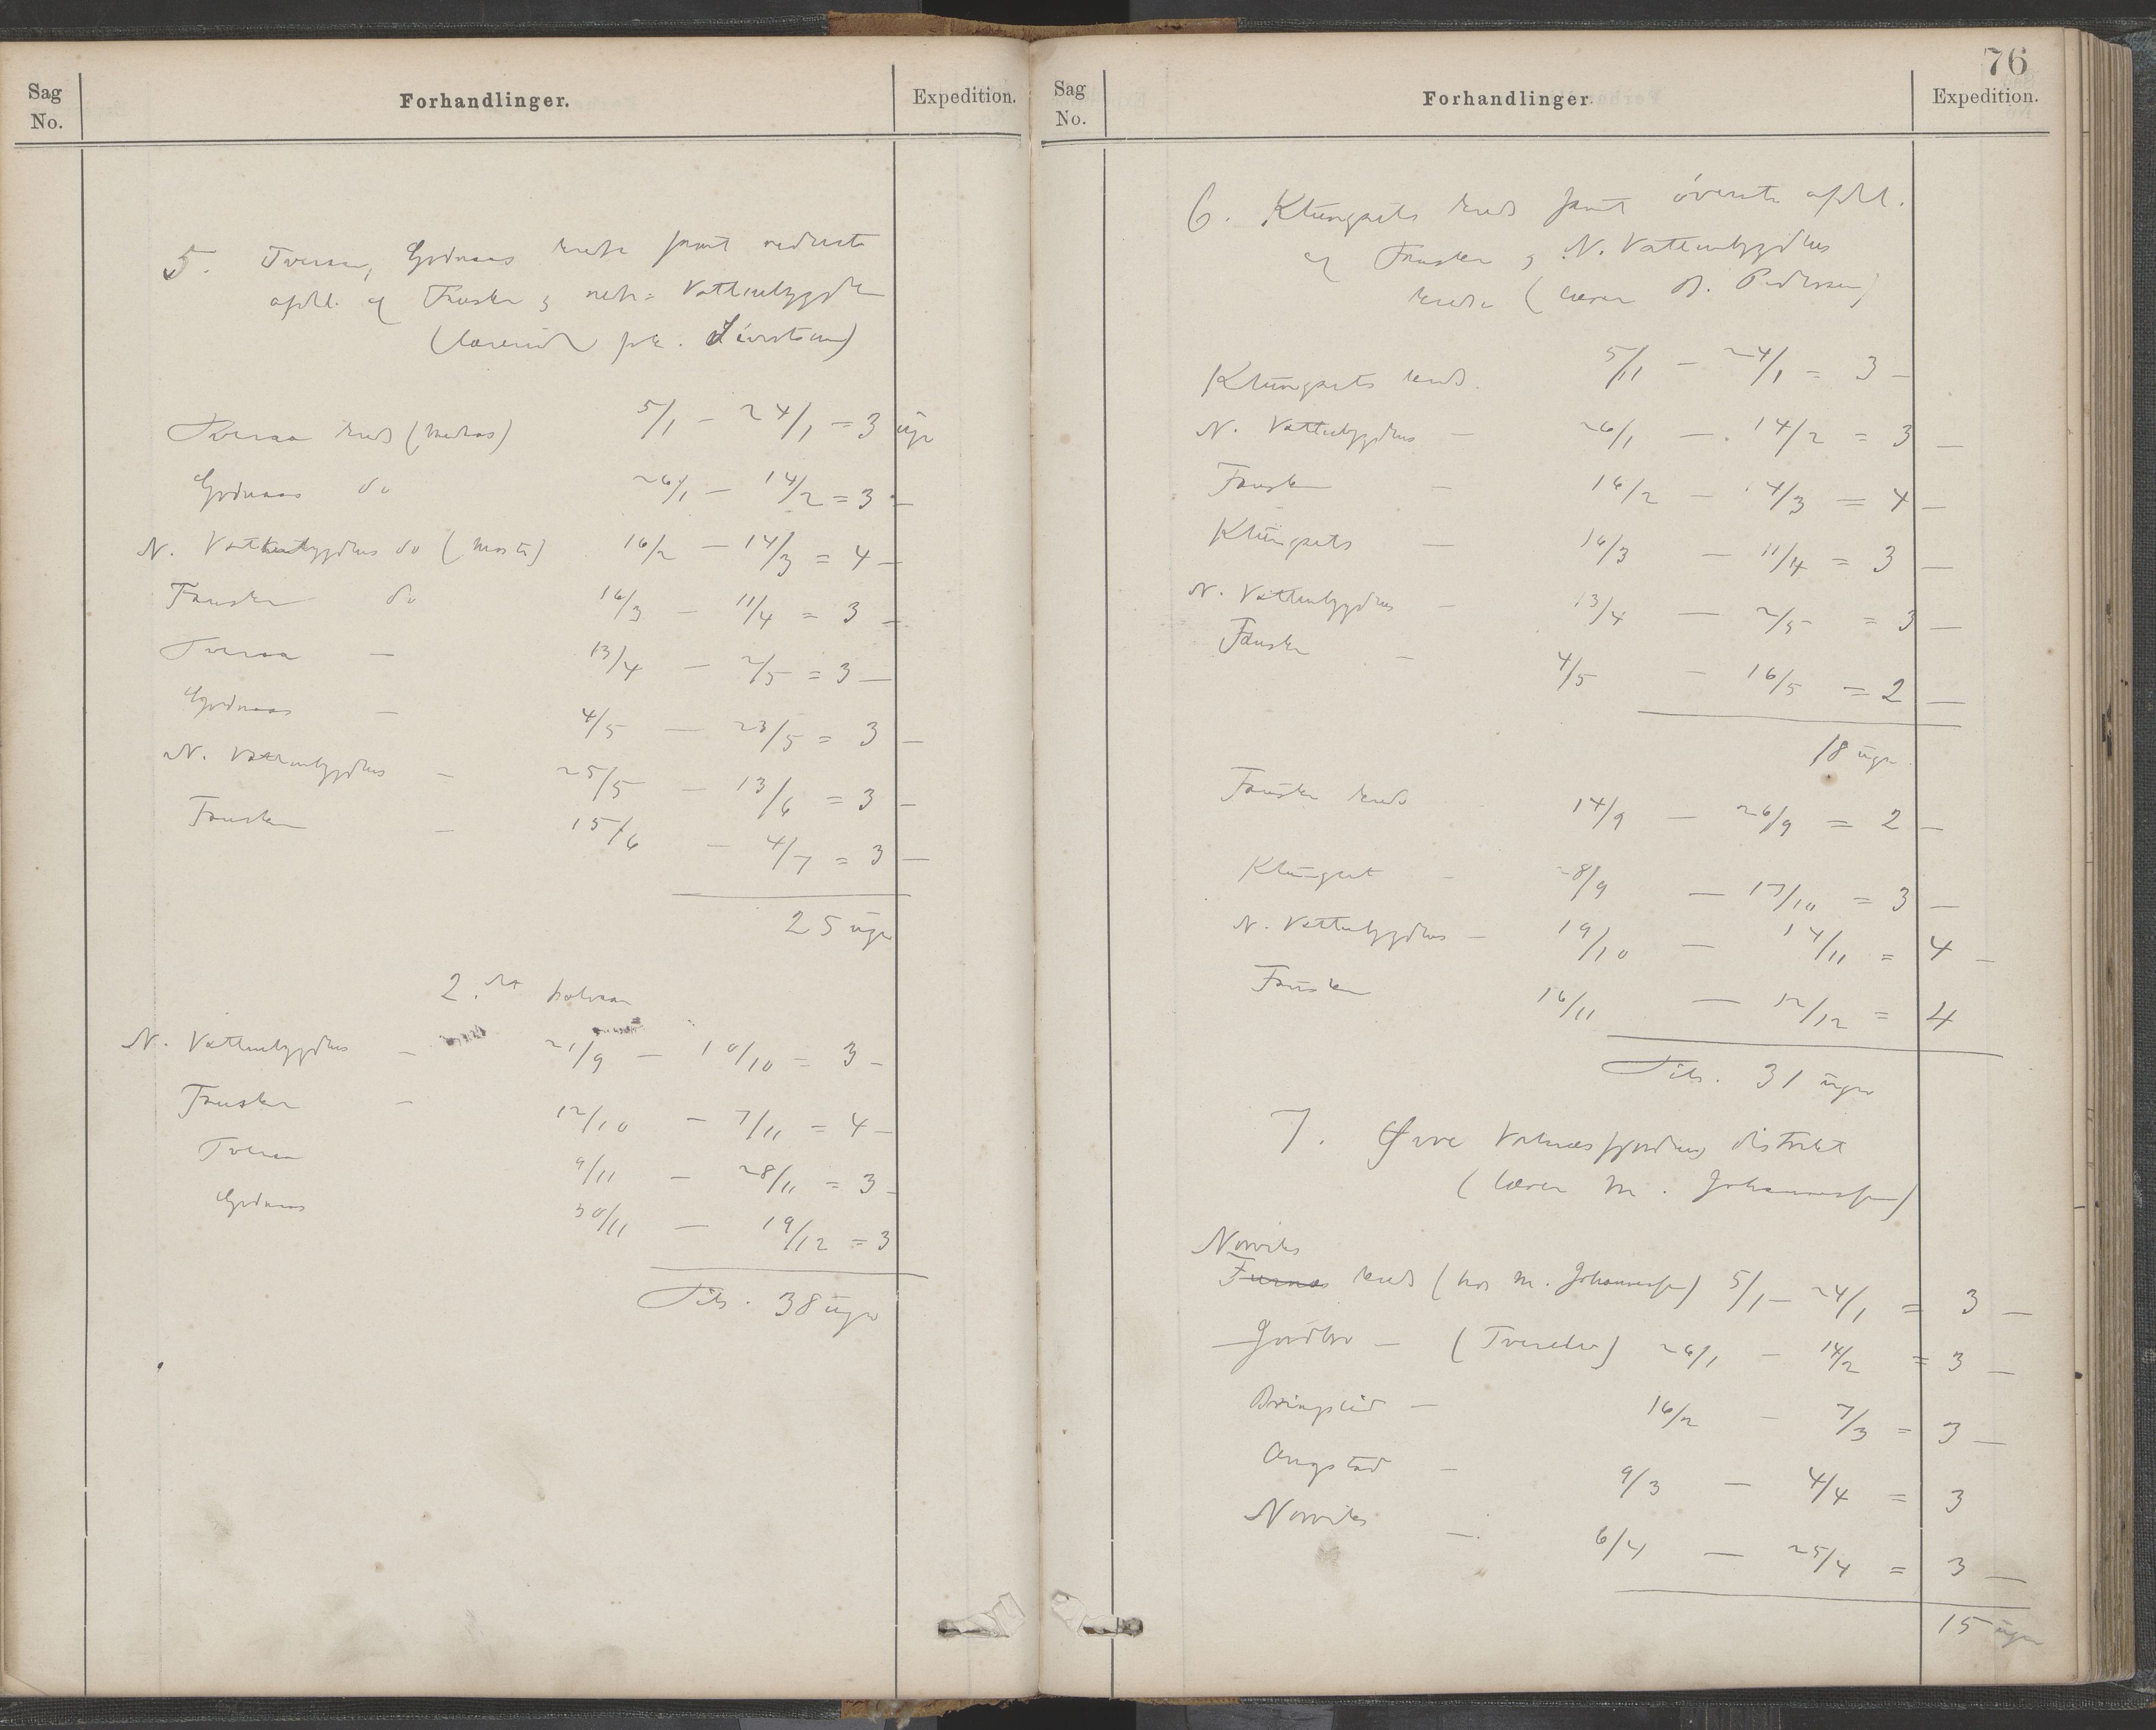 Sag No.
Forhandlinger.
Expedition.
5. Tveraa, Godnaas kredse samt nederste
afdel. af Fauske og nedre Vattenbygden
(lærerinde frk. Sivertsen)
Tveraa kreds (Medaas) 5/1 – 24/1 = 3 uger
Godnaas do 26/1 – 14/2 = 3 –
N. Vattenbygdens do (Moste) 16/2 – 14/3 = 4 –
Fauske do 16/3 – 11/4 = 3 –
Tveraa – 13/4 – 2/5 = 3 –
Godnaas – 4/5 – 23/5 = 3 –
N. Vattenbygdens – 25/5 – 13/6 = 3 –
Fauske – 15/6 – 4/7 = 3 –
25 uger
2.det halvaar
N. Vattenbygdens – 21/9 – 10/10 = 3 –
Fauske – 12/10 – 7/11 = 4 –
Tveraa 9/11 – 28/11 = 3 –
Godnaas 30/11 – 19/12 = 3
Tils. 38 uger
76
Sag No.
Forhandlinger.
Expedition.
6. Klungsets kreds samt øverste afdel.
af Fauske og N. Vattenbygdens
kredse (lærer O. Pedersen)
Klungsets kreds. 5/11 – 24/1 = 3 –
N. Vattenbygdens – 26/1 – 14/2 = 3 –
Fauske – 16/2 – 14/3 = 4 –
Klungsets – 16/3 – 11/4 = 3 –
N. Vattenbygdens – 13/4 – 2/5 = 3 –
Fauske – 4/5 – 16/5 = 2 –
18 uger
Fauske kreds 14/9 – 26/9 = 2 –
Klungset – 28/9 – 17/10 = 3 –
N. Vattenbygdens – 19/10 – 14/11 = 4 –
Fauske 16/11 – 12/12 = 4
Tils. 31 uger
7. Øvre Valnesfjordens distrikt
(lærer M. Johannessen)
Norviks
Furnes kreds (hos M. Johannessen) 5/1 – 24/1 = 3 –
Jordbro – (Tverelv) 26/1 – 14/2 = 3 –
Bringslid – 16/2 – 7/3 = 3 –
Angstad – 9/3 – 4/4 = 3
Norviks – 6/4 – 25/4 = 3 –
15 uger